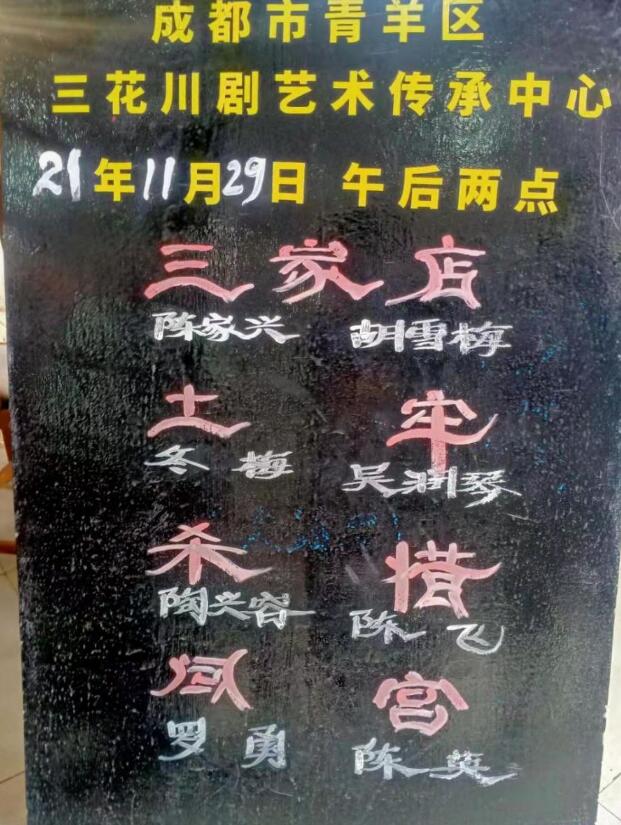 成都市青羊区
三花川剧艺术传承中心
21年11月29日 午后两点
三家店
陈家兴 胡雪梅
土牢
冬梅 吴润琴
杀惜
陶兴容 陈飞
闯宫
罗勇 陈英